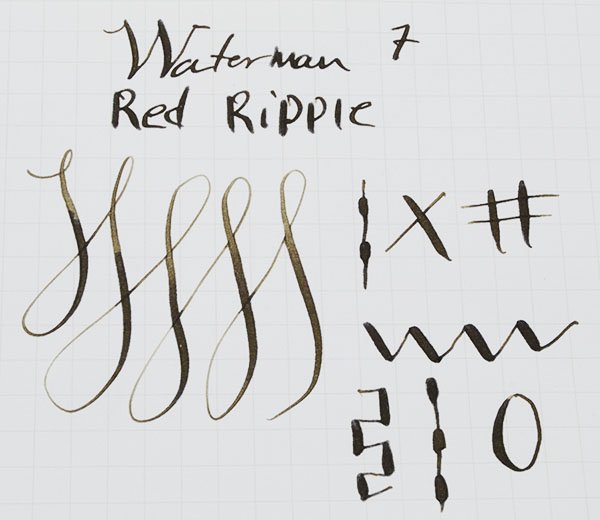 Waterman 7
Red Ripple